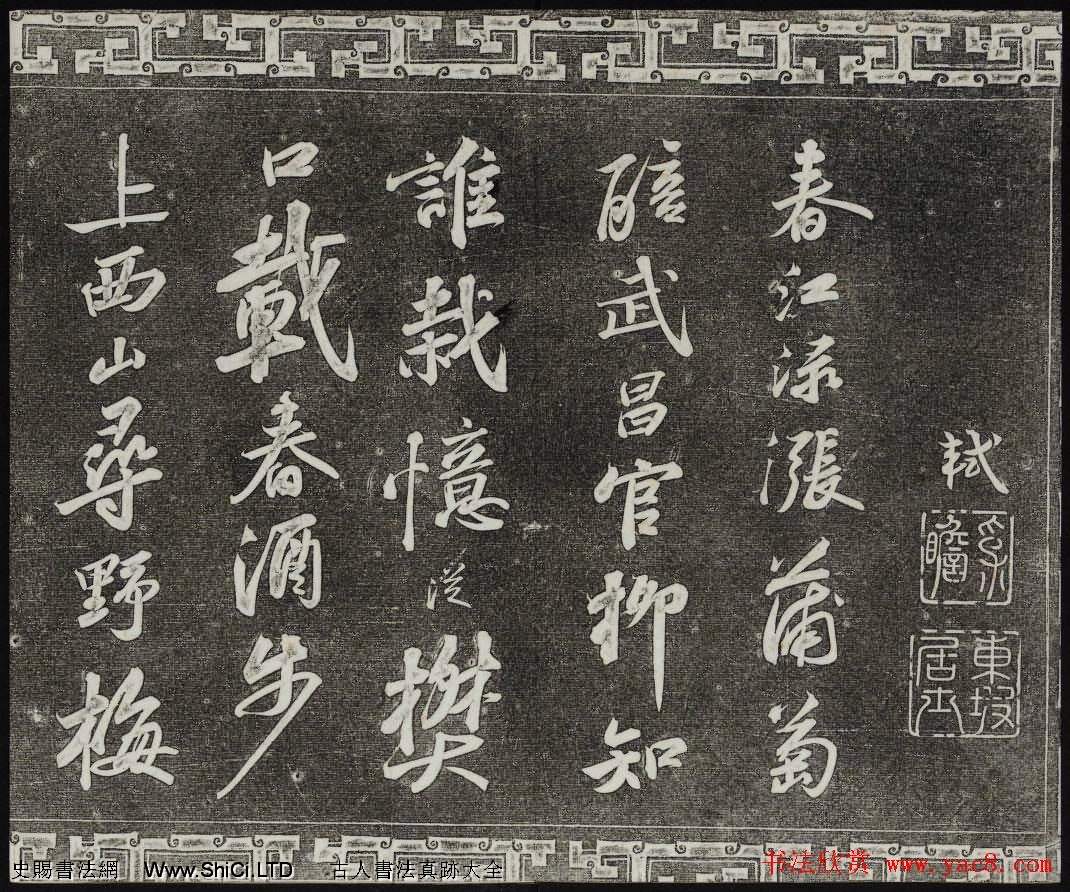 軾
東坡居士
春江淥漲蒲萄
醅武昌官柳知
誰栽憶從樊
口載春酒步
上西山尋野梅
史賜書法網 Www.ShiCi.LTD 古人書法真跡大全
书法欣赏 www.yac8.com